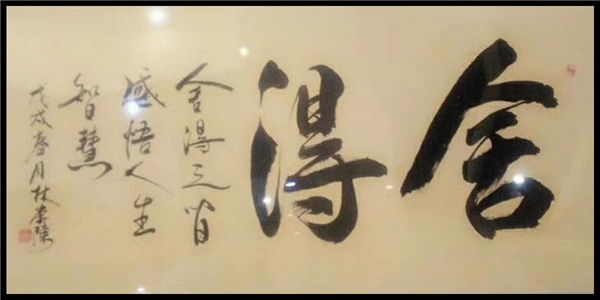 舍得
舍得之间
感悟人生
智慧
戊戌春月